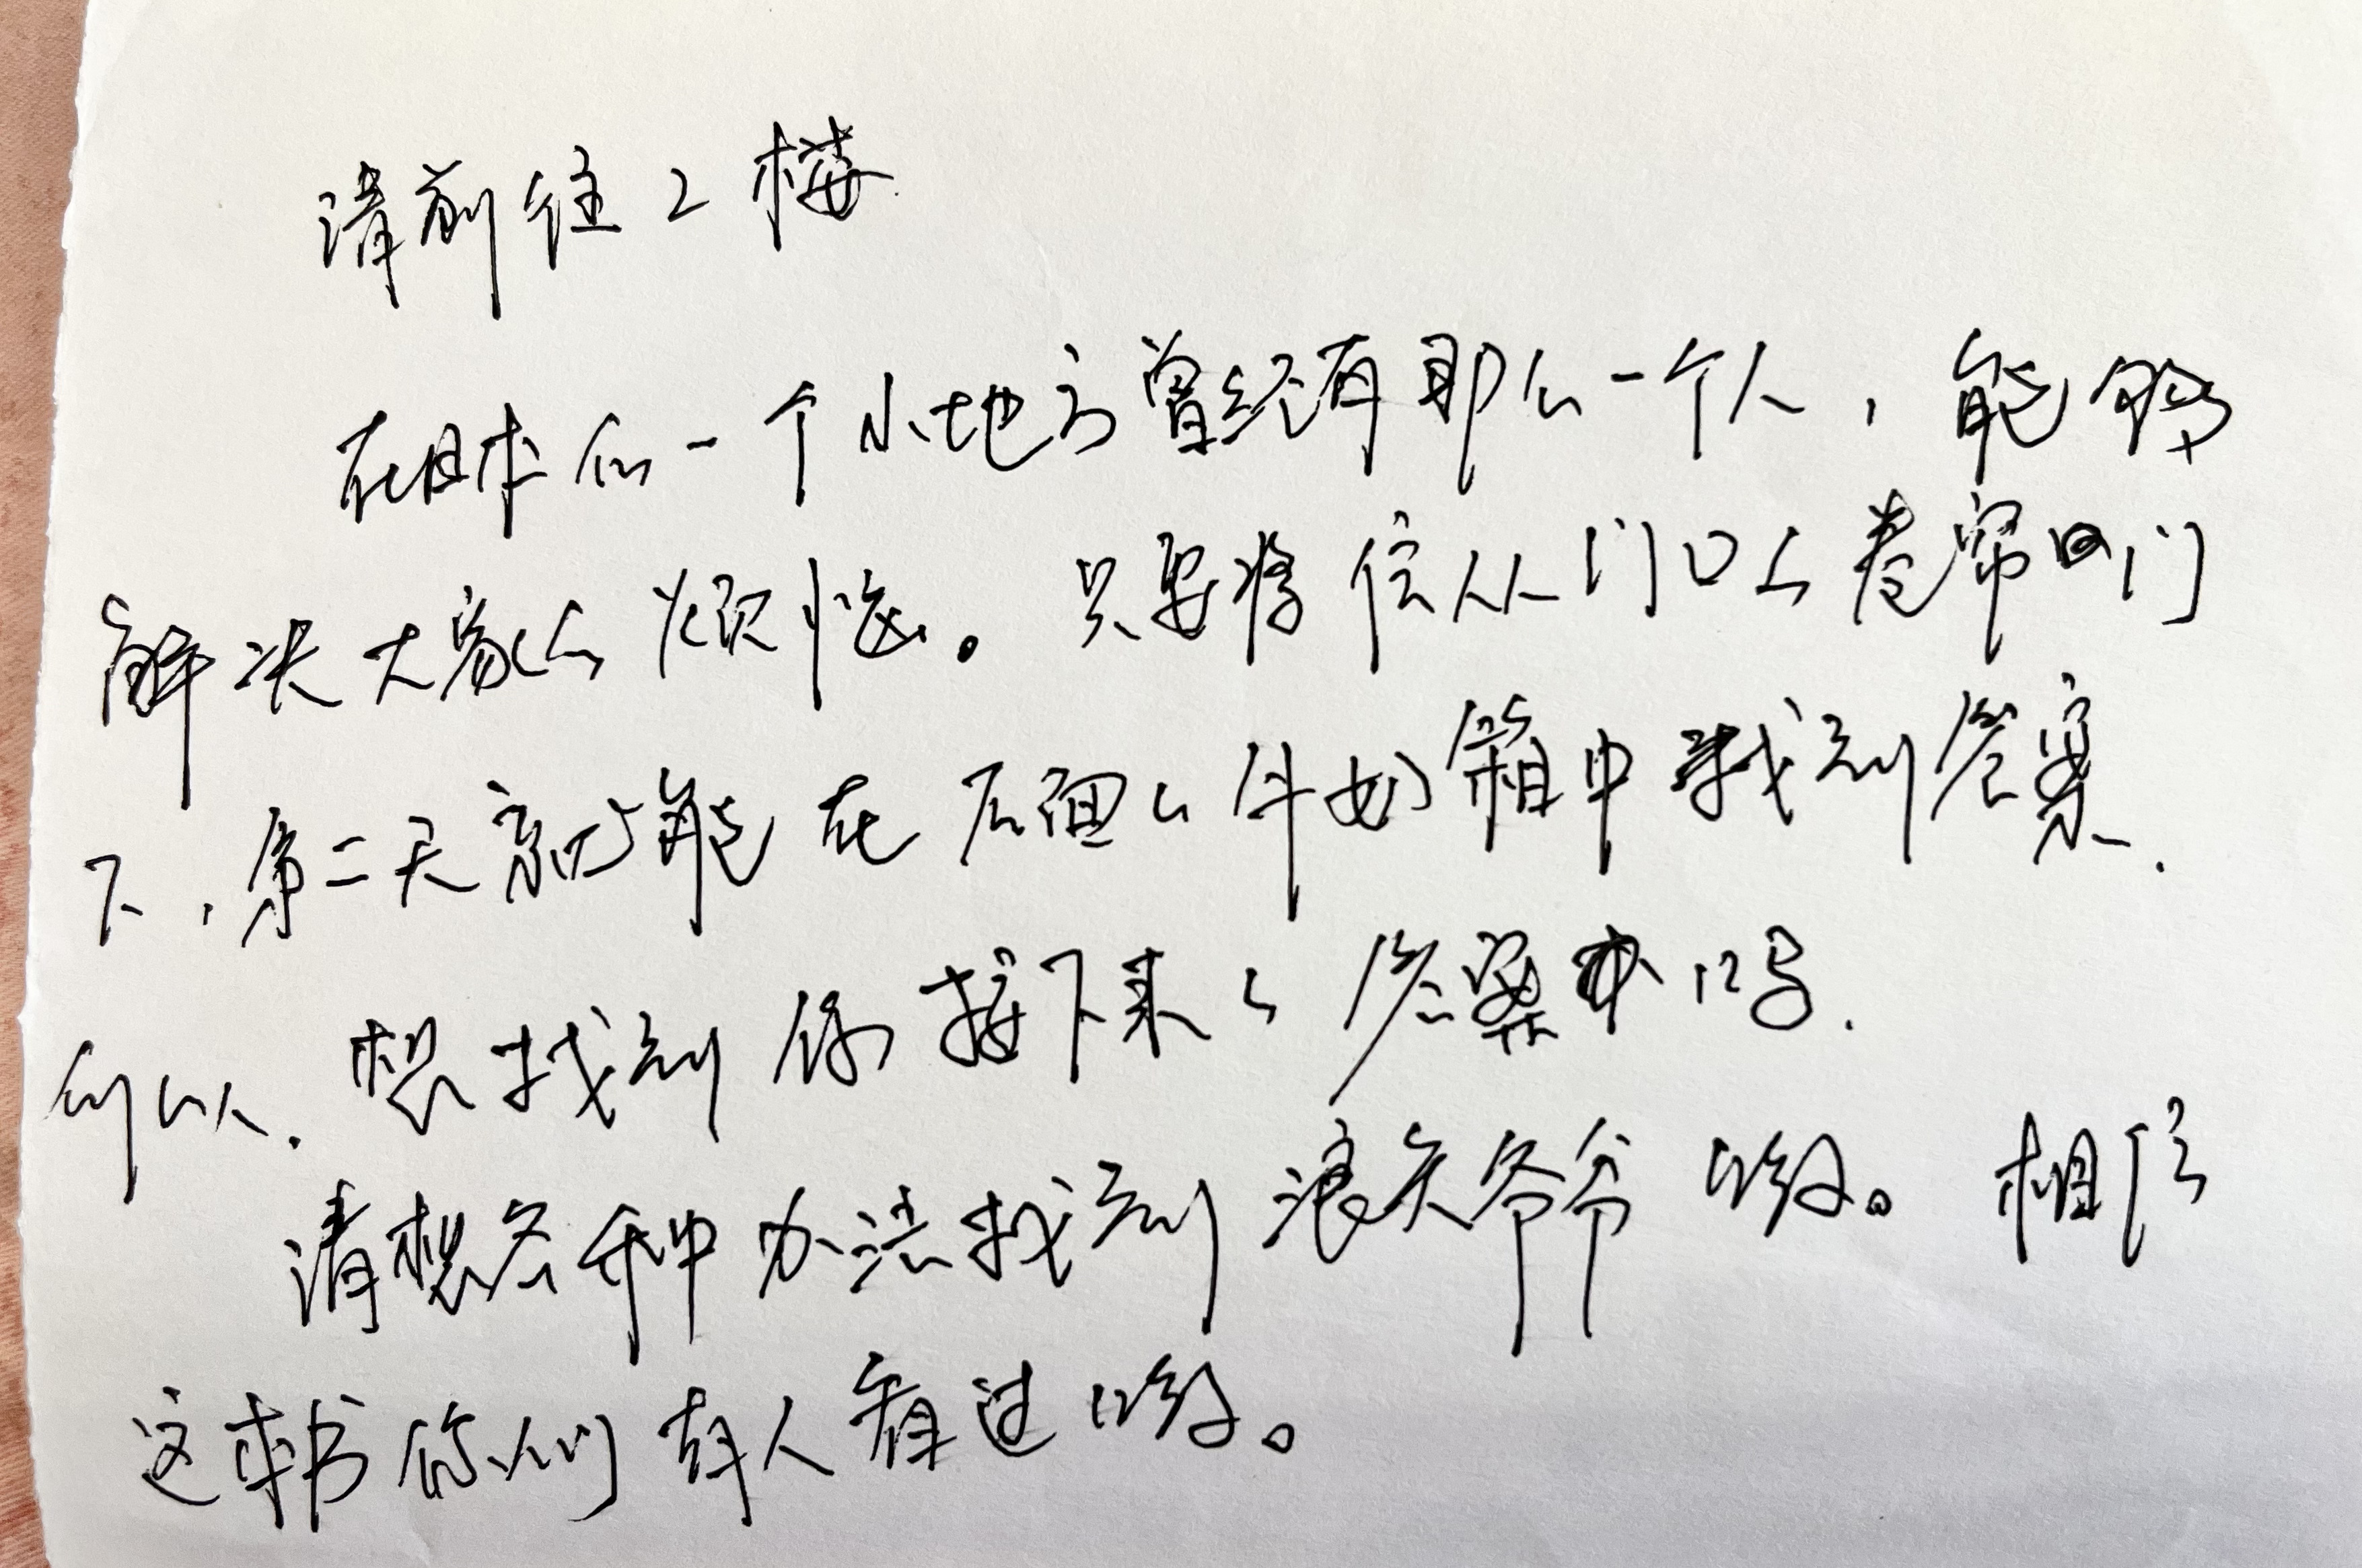 请前往2楼
在日本的一个小地方曾经有那么一个人，能够
解决大家的烦恼。只要将信从门口上卷帘门
下，第二天就能在后面的牛奶箱中找到答案.
所以.想找到你接下来的答案本吗.
请想各种办法找到浪矢爷爷哟。相信
这本书你们有人看过哟。